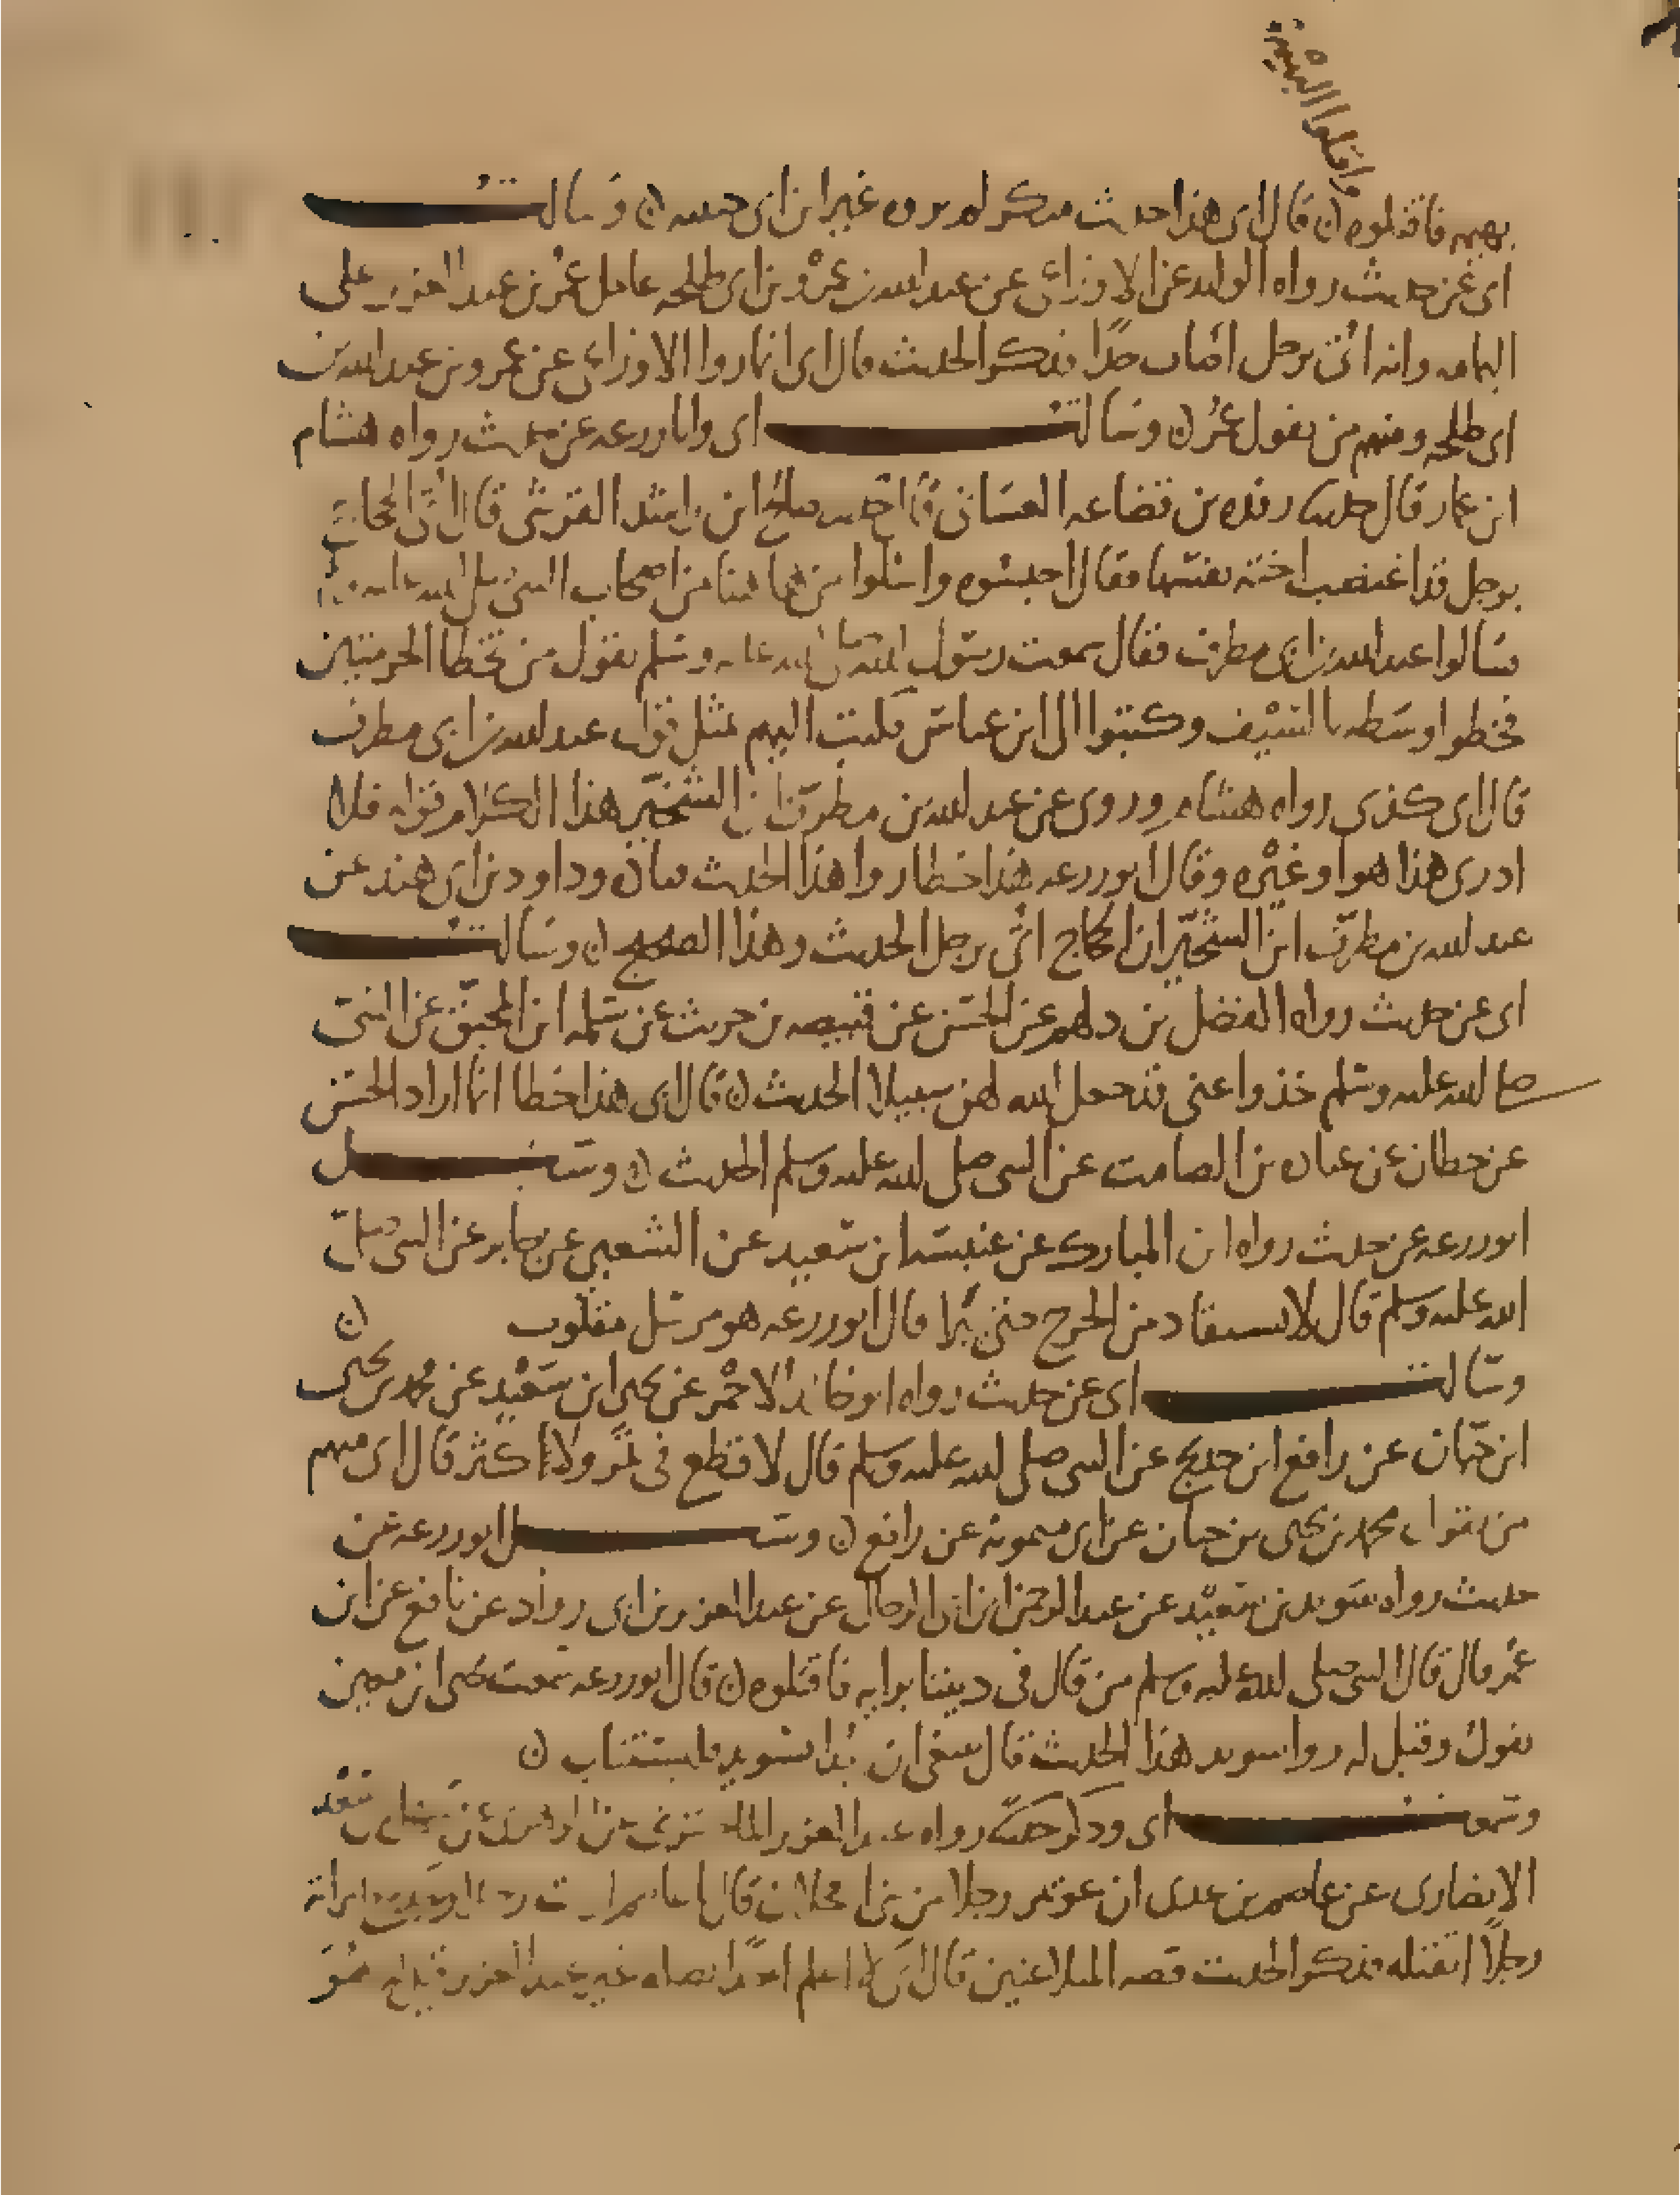 واقتلوا البهيمة
بهيمه فاقتلوه ن قال ابى هذا حديث منكر لم يروه غير ابن ابى حبيبه ن وسالت
ابى عن حديث رواه الوليد عن الاوزاعى عن عبد الله بن عمرو بن ابى طلحه عامل عمر بن عبد العزيز على
اليمامه وانه اتى برجل اصاب حدا فذكر الحديث قال ابى انما روا الاوزاعى عن عمرو بن عبد الله بن
ابى طلحه ومنهم من يقول عمر ن وسالت ابى وابا زرعه عن حديث رواه هشام
ابن عمار قال حدثنا رفده بن قضاعه الغسانى قال حدثنا صالح ابن راشد القرشى قال اتى الحجاج
برجل قد اغتصب اخته نفسها فقال احبسوه واسلوا من هاهنا من اصحاب النبى صلى الله عليه
فسالوا عبد الله بن ابى مطرف فقال سمعت رسول الله صلى الله عليه وسلم يقول من تخطا الحرمتين
فخطوا وسطه بالسيف وكتبوا الى ابن عباس فكتب اليهم بمثل قول عبد الله بن ابى مطرف
قال ابى كذى رواه هشام وروى عن عبد الله بن مطرف بن الشخير هذا الكلام قوله فلا
ادرى هذا هو او غيره وقال ابو زرعه هذا خطا روا هذا الحديث
وداود بن ابى هند عن
عبد الله بن مطرف ابن الشخير ان الحجاج اتى برجل الحديث وهذا الصحيح ن وسالت
ابى عن حديث رواه الفضل بن دلهم عن الحسن عن قبيصه بن حريث عن سلمه ابن المحبق عن النبى
صلى الله عليه وسلم خذوا عنى قد جعل الله لهن سبيلا الحديث ن قال ابى هذا خطا انما اراد الحسن
عن حطان عن عباده بن الصامت عن النبى صلى الله عليه وسلم الحديث ن وسئل
ابو زرعه عن حديث رواه ابن المبارك عن عنبسه ابن سعيد عن الشعبي عن جابر عن النبى صلى
الله عليه وسلم قال لا يستقاد من الجرح حتى يبرا قال ابو زرعه هو مرسل مقلوب ن
وسالت ابى عن حديث رواه ابو خالد الاحمر عن يحيى ابن سعيد عن محمد بن يحيى
ابن حبان عن رافع ابن خديج عن النبى صلى الله عليه وسلم قال لا قطع في ثمر ولا كثر قال ابى منهم
من يقول محمد بن يحيى بن حبان عن ابى ميمونه عن رافع ن وسئل ابو زرعه عن
حديث رواه سويد بن سعيد عن عبد الرحمن ابن ابى الرجال عن عبد العزيز بن ابى رواد عن نافع عن ابن
عمر قال قال النبى صلى الله عليه وسلم من قال فى ديننا برايه فاقتلوه ن قال ابو زرعه سمعت يحيى ابن معين
يقول وقيل له روا سويد هذا الحديث قال ينبغى ان يبدا بسويد فيستتاب ن
وسمعت ابى وذكر حديث رواه عبد العزيز الماجشون عن الزهرى عن سهل بن سعد
الانصارى عن عاصم بن عدى ان عويمر رجلا من بنى العجلان قال يا عاصم ارايت رجلا وجد مع امراته
رجلا ايقتله فذكر الحديث قصه المتلاعنين قال ابى لا اعلم احدا تابعه غير عبد العزيز